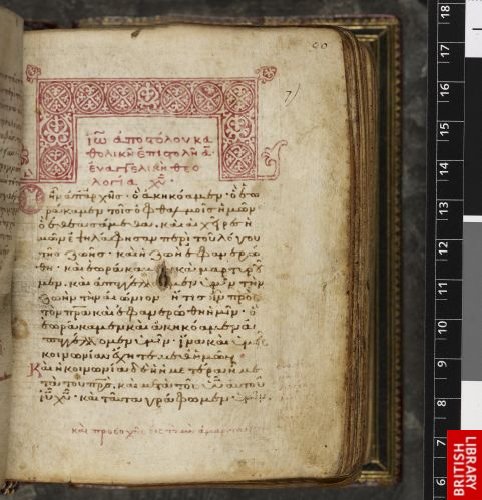 90
7)
ἰῶ ἀποστόλου κα
θολικὴ ἐπιστολὴ α̅
εὐαγγελικὴ θεο
λογία χ̅υ̅·
Ὃ ἦν ἀπαρχῆς· ὃ ἀκηκόαμεν· ὃ ἑω
ράκαμεν τοῖς ὀφθαλμοῖς ἡμῶν·
ὃ ἐθεασάμεθα· καὶ αἱ χεῖρες ἡ
μῶν ἐψηλάφησαν περὶ τοῦ λόγου
τῆς ζωῆς· καὶ ἡ ζωὴ ἐφανερώ
θη· καὶ ἑωράκαμεν καὶ μαρτυροῦ
μεν. καὶ ἀπαγγέλλομεν ὑμῖν τὴν
ζωὴν τὴν αἰώνιον· ἥτις ἦν πρὸς
τὸν π̅ρ̅α̅ καὶ ἐφανερώθη ἡμῖν· ὃ
ἑωράκαμεν καὶ ἀκηκόαμεν ἀ
παγγέλλομεν ὑμῖν· ἵνα καὶ ὑμεῖς
κοινωνίαν ἔχητε μεθ ἡμῶν·
Καὶ ἡ κοινωνία δὲ ἡ ἡμετέρα ἡ με
τὰ τοῦ π̅ρ̅ς̅. καὶ μετὰ τοῦ υ̅υ̅ αὐτοῦ
ι̅υ̅ χ̅υ̅· καὶ ταῦτα γράφωμεν ὑμῖν·
18
17
16
15
14
13
12
11
10
9
8
7
6
BRITISH
LIBRARY